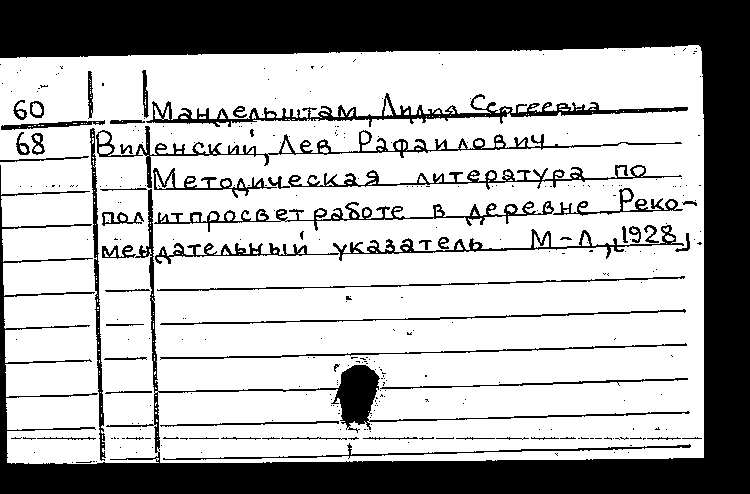 60 Мандельштам, Лидия Сергеевна
68 Виленский, Лев Рафаилович.
Методическая литература по
политпросветработе в деревне Реко-
мендательный указатель М-Л, [1928].